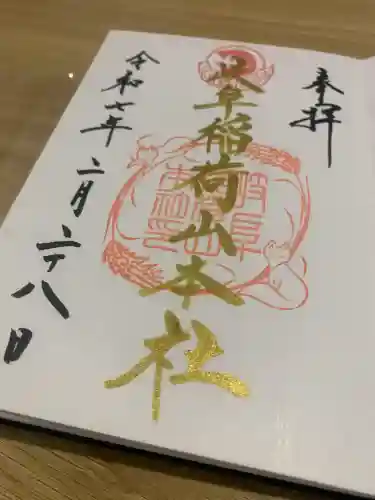 奉拝
岐阜稲荷山本社
令和七年二月二十八日